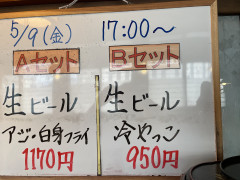 5/9(金) 17:00〜
Aセット
生ビール
アジ・白身フライ
1170円
Bセット
生ビール
冷やっこ
950円